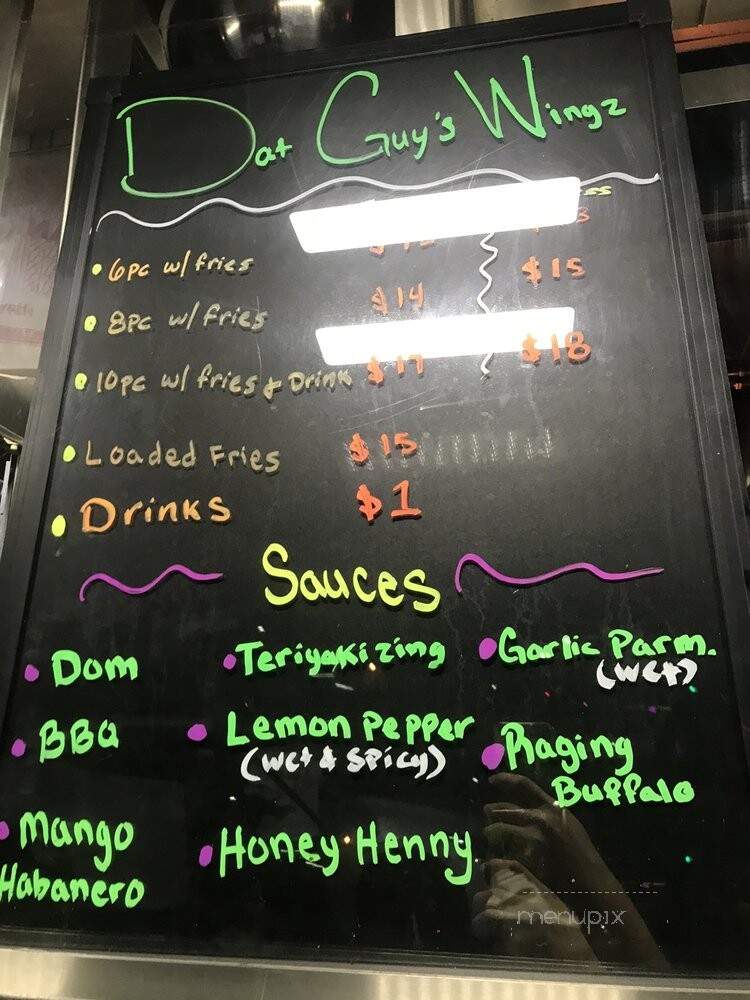 Dat Guy's Wingz
6pc w/ fries
8pc w/ fries $14 $15
10pc w/ fries & Drink $17 $18
Loaded Fries $15
Drinks $1
Sauces
Dom
Teriyaki zing
Garlic Parm.
(wet)
BBQ
Lemon Pepper
(wet & spicy)
Raging
Buffalo
Mango
Habanero
Honey Henny
menupix